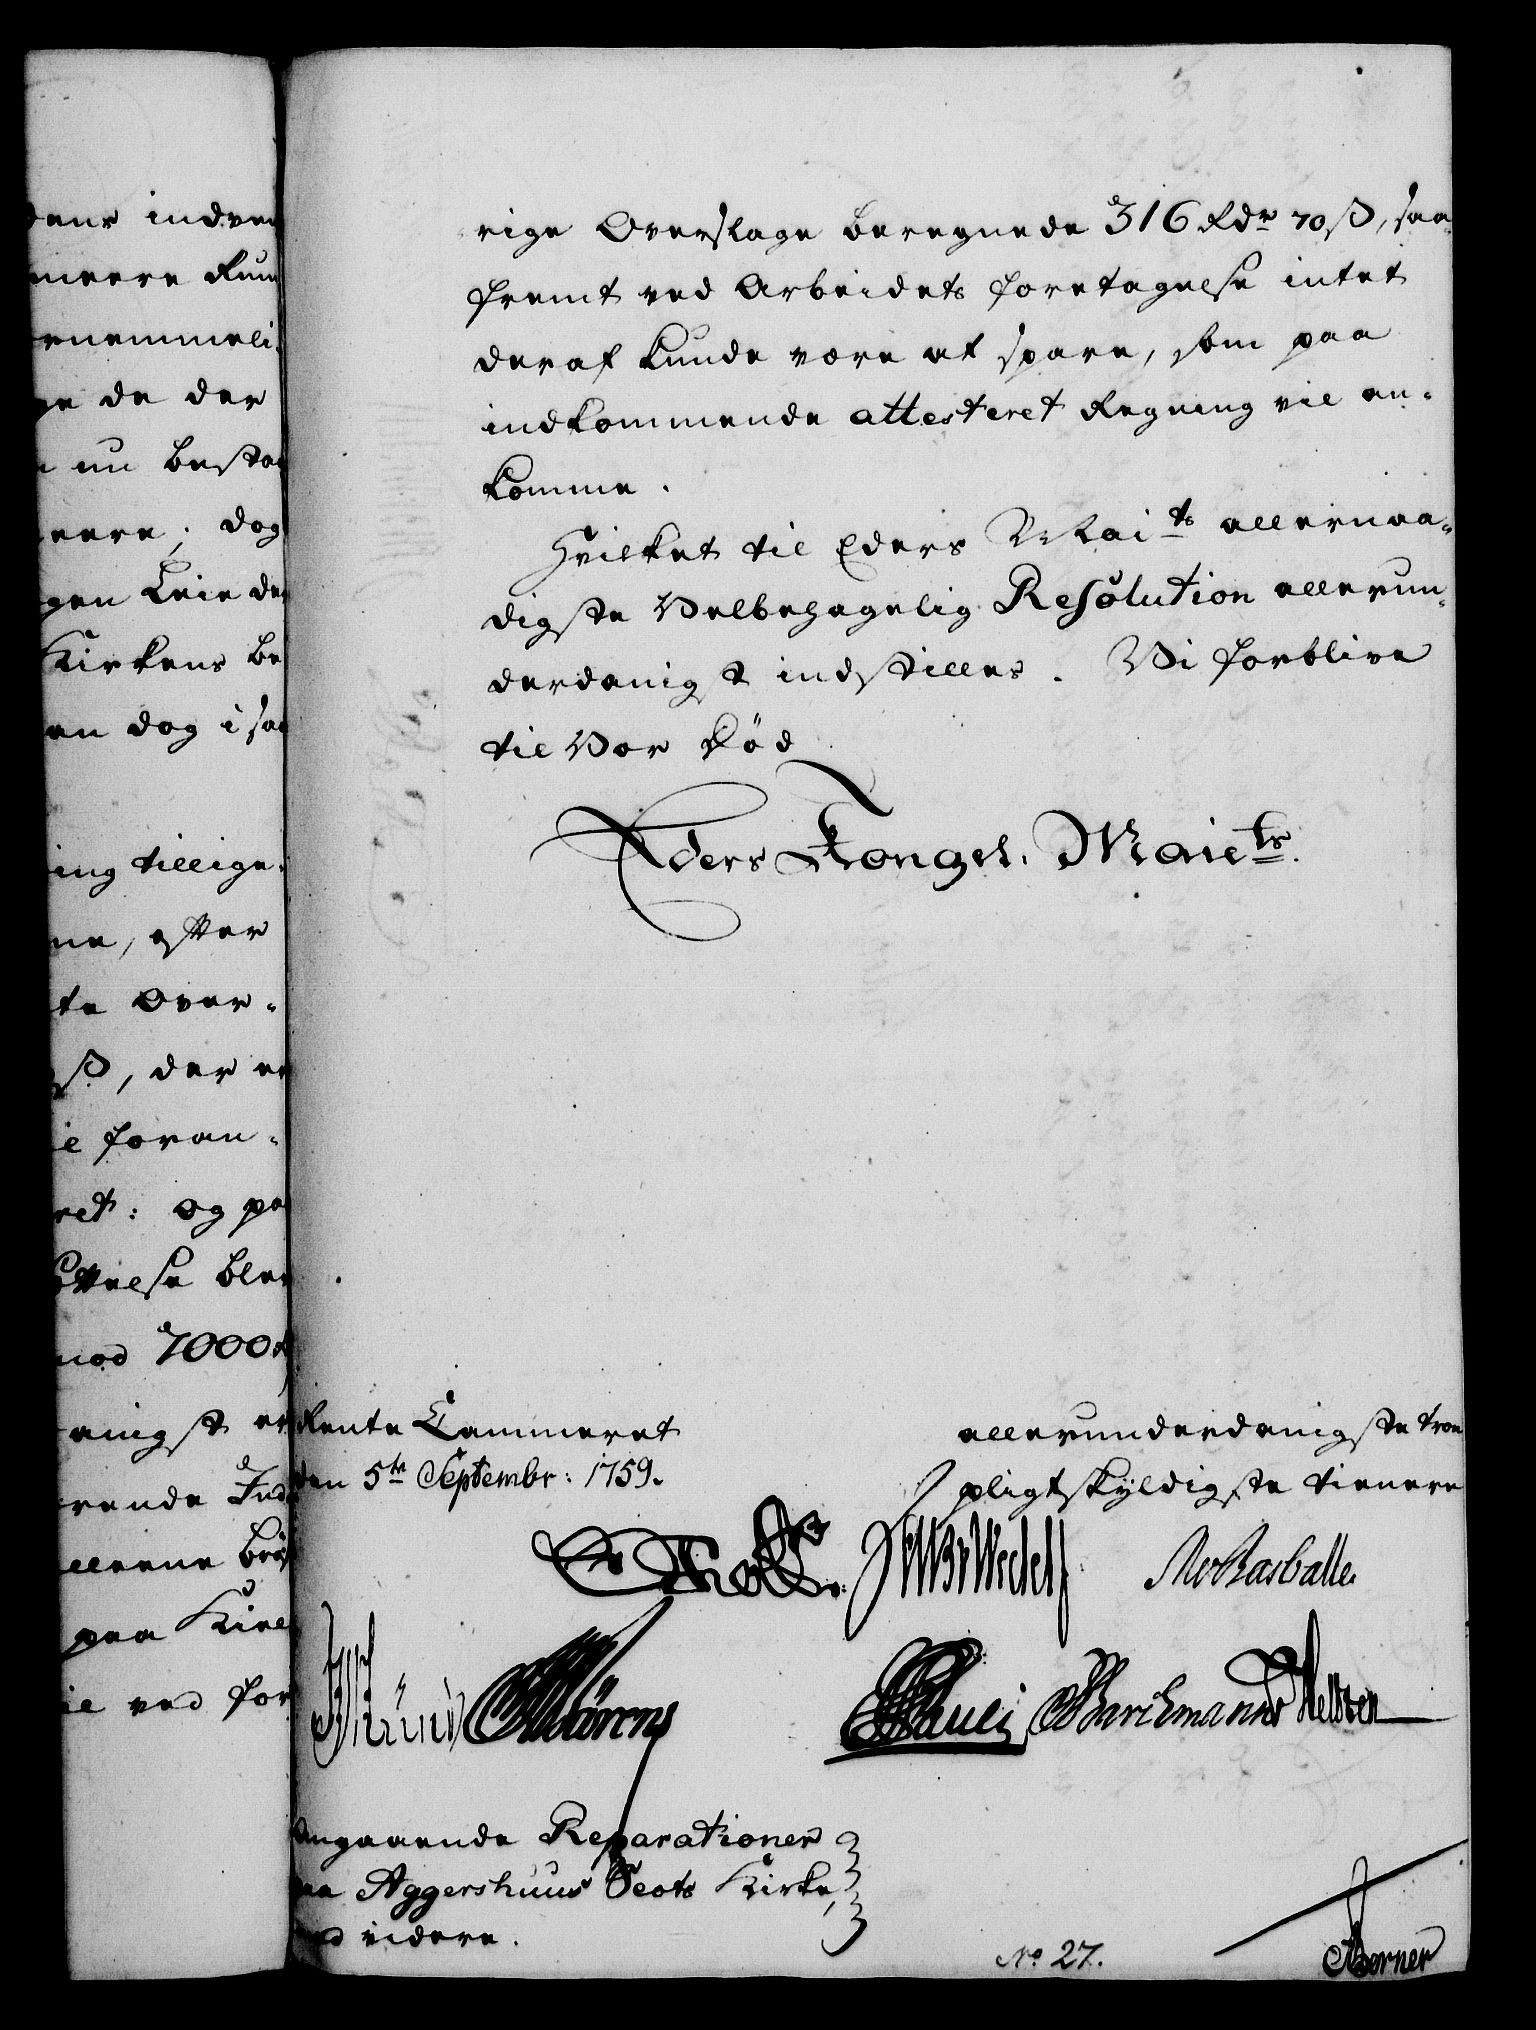 dens indven
meere Rum
rnemmeli-
ge de der
nu bestaa
eere; dog
gen Leie de
Kirkens be
en dog i saa
ing tillige-
ne, efter
te Over-
ß, der er
ie foran-
ret: og paa
ttelse ble
mod 7000 r
anigst er
rende Ind
lleene brö
paa Kirk
ie ved for
rige Overslage beregnede 316 Rdr 70 ß, saa-
fremt ved Arbeidets foretagelse intet
deraf kunde være at spare, som paa
indkommende attesteret Regning vil an-
komme.
Hvilket til Eders Mai ts allernaa-
digste Velbehagelig Resolution allerun-
derdanigst indstilles. Vi forblive
til Vor Död
Eders Kongel. Maiets.
Rente Cammeret
den 5te Septembr: 1759.
allerunderdanigste troe
pligtskyldigste tienere
Wedell
Barchmann
Angaaende Reparationer
paa Aggershuus Slots Kirke,
med videre.
No 27.
Berner